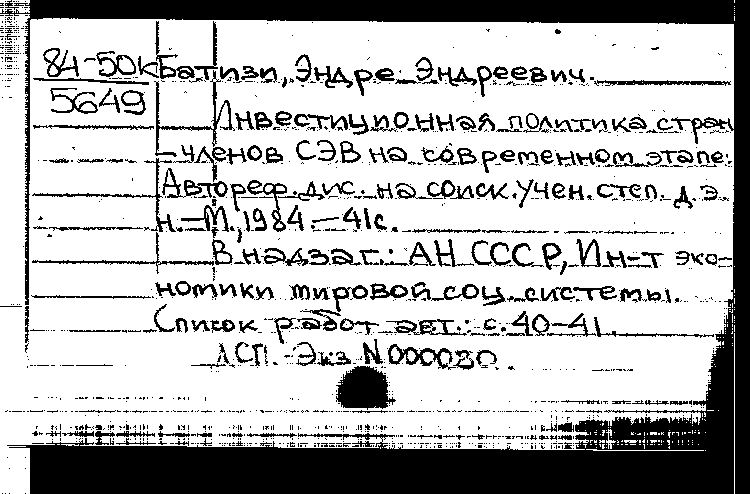 84-50к
5649
Батизи, Эндре Эндреевич.
Инвестиционная политика стран
-членов СЭВ на современном этапе:
Автореф. дис. на соиск. учен. степ. д. э.
н.-М., 1984.-41с.
В надзаг.: АН СССР, Ин-т эко-
номики мировой соц. системы.
Список работ авт.: с. 40-41.
ДСП.-Экз N000080.